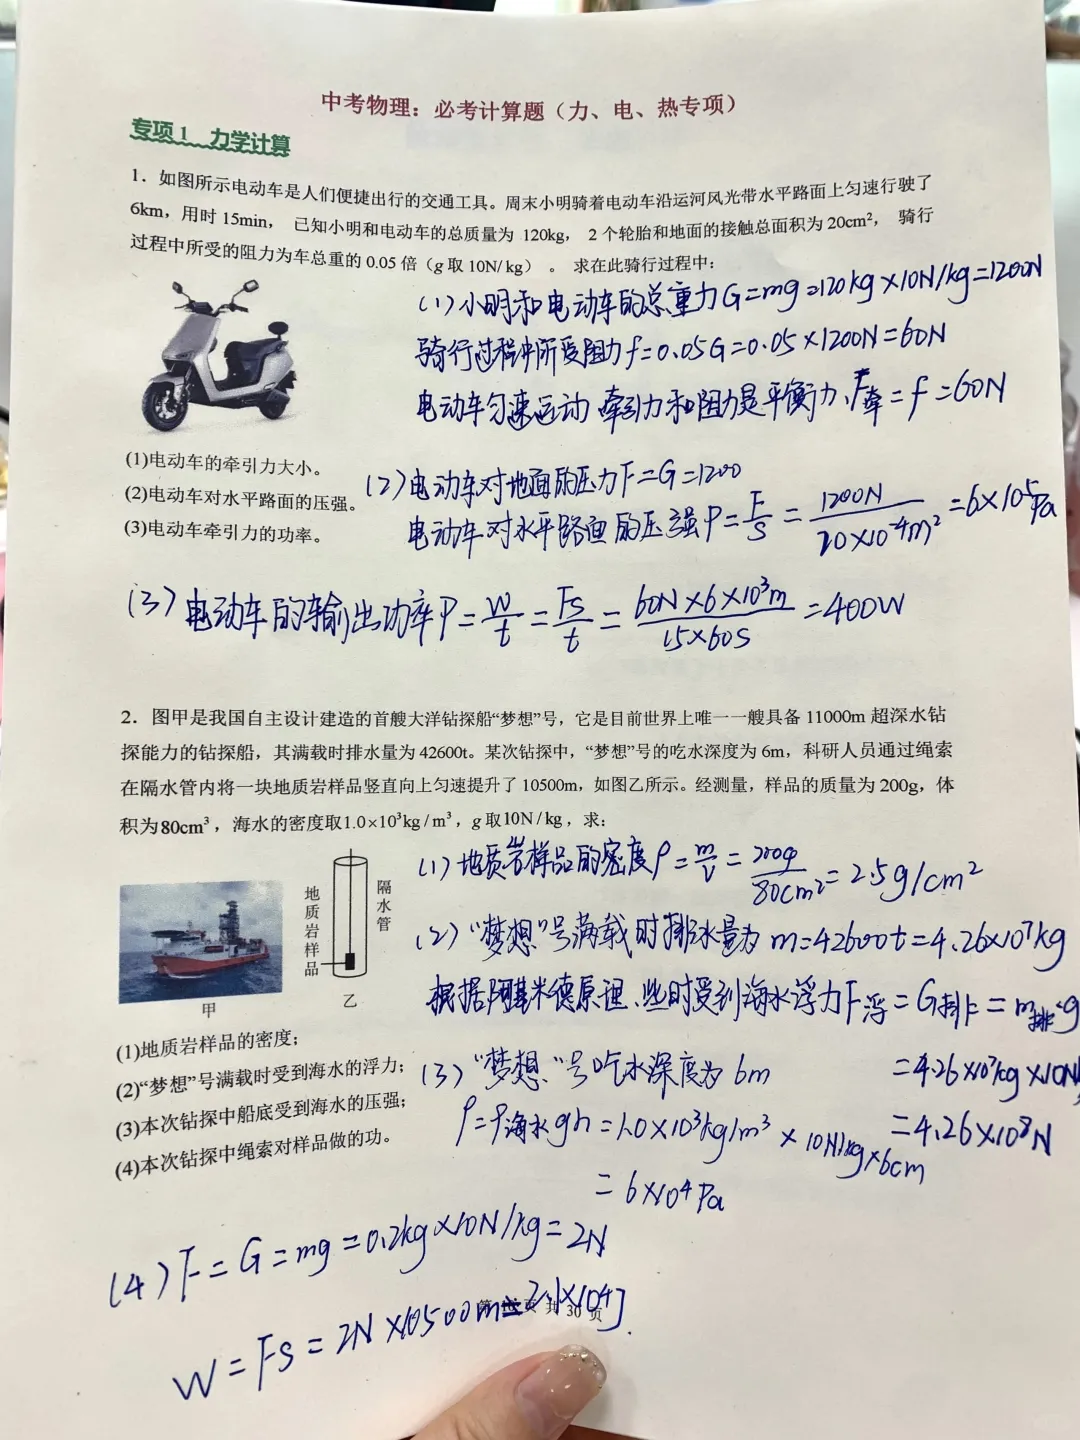 中考物理：必考计算题（力、电、热专项）
专项1 力学计算
1．如图所示电动车是人们便捷出行的交通工具。周末小明骑着电动车沿运河风光带水平路面上匀速行驶了
6km，用时15min， 已知小明和电动车的总质量为 120kg， 2个轮胎和地面的接触总面积为20cm²， 骑行
过程中所受的阻力为车总重的0.05倍（g取10N/kg）。 求在此骑行过程中:
(1)小明和电动车的总重力G=mg=120kg×10N/kg=1200N
骑行过程中所受阻力f=0.05G=0.05×1200N=60N
电动车匀速运动，牵引力和阻力是平衡力，F牵=f=60N
(1)电动车的牵引力大小。
(2)电动车对水平路面的压强。
(3)电动车牵引力的功率。
(2)电动车对地面的压力F=G=1200
电动车对水平路面的压强P=F/S=1200N/20×10⁻⁴m²=6×10⁵Pa
(3)电动车的输出功率P=W/t=Fs/t=60N×6×10³m/15×60S=400W
2．图甲是我国自主设计建造的首艘大洋钻探船“梦想”号，它是目前世界上唯一一艘具备11000m超深水钻
探能力的钻探船，其满载时排水量为42600t。某次钻探中，“梦想”号的吃水深度为6m，科研人员通过绳索
在隔水管内将一块地质岩样品竖直向上匀速提升了10500m，如图乙所示。经测量，样品的质量为200g，体
积为80cm³，海水的密度取1.0×10³kg/m³，g取10N/kg，求:
(1)地质岩样品的密度ρ=m/v=200g/80cm²=2.5g/cm²
地质岩样品
隔水管
甲
乙
(2)“梦想”号满载时排水量为m=42600t=4.26×10⁷kg
根据阿基米德原理，此时受到海水浮力F浮=G排=m排g
=4.26×10⁷kg×10N
=4.26×10⁸N
(1)地质岩样品的密度；
(2)“梦想”号满载时受到海水的浮力；
(3)本次钻探中船底受到海水的压强；
(4)本次钻探中绳索对样品做的功。
(3)“梦想”号吃水深度为6m
P=ρ海水gh=1.0×10³kg/m³×10N/kg×6cm
=6×10⁴Pa
(4)F=G=mg=0.2kg×10N/kg=2N
W=Fs=2N×10500m=2.1×10⁴J.
页 共 30 页